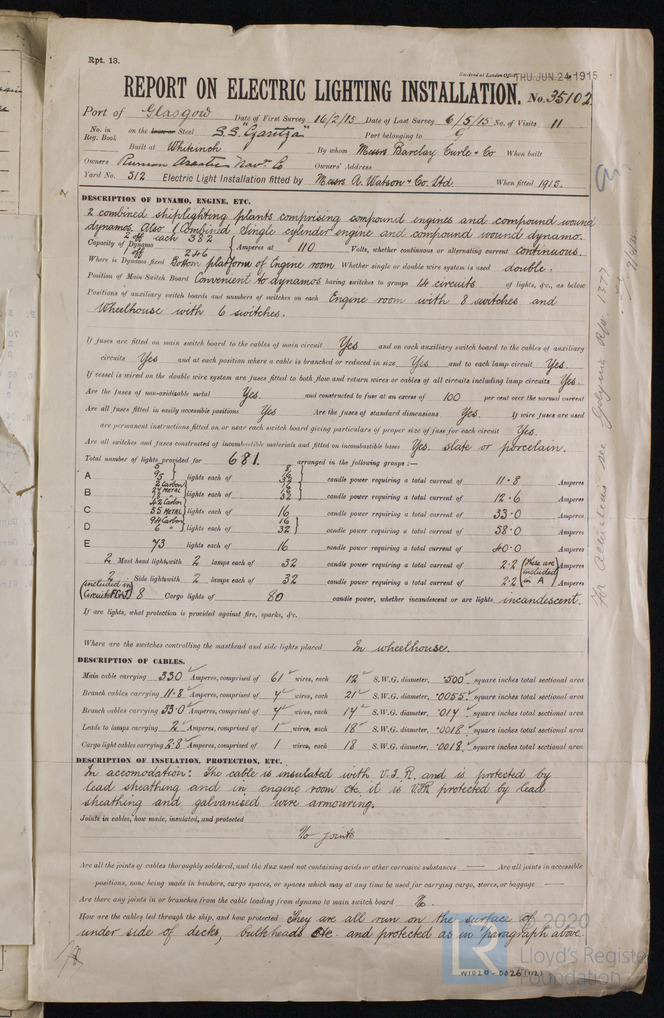 Rpt. 13.
Received at London Office THU. JUN. 24 1915
REPORT ON ELECTRIC LIGHTING INSTALLATION. No. 35102
Port of Glasgow Date of First Survey 16/2/15 Date of Last Survey 6/5/15 No. of Visits 11
No. in Reg. Book on the Iron or Steel S.S. "Czaritza" Port belonging to
Built at Whiteinch By whom Messrs Barclay Curle & Co When built
Owners Russian Asiatic Nav. Co Owners' Address
Yard No. 512 Electric Light Installation fitted by Messrs A. Watson & Co. Ltd. When fitted 1915.
DESCRIPTION OF DYNAMO, ENGINE, ETC.
2 combined shiplighting plants comprising compound engines and compound wound
dynamos. Also 1 Combined Single cylinder engine and compound wound dynamo.
Capacity of Dynamo 2 off each 382 1 off 246 Amperes at 110 Volts, whether continuous or alternating current continuous.
Where is Dynamo fixed Bottom platform of Engine room Whether single or double wire system is used double.
Position of Main Switch Board Convenient to dynamos having switches to groups 14 circuits of lights, &c., as below
Positions of auxiliary switch boards and numbers of switches on each Engine room with 8 switches and
Wheelhouse with 6 switches.
If fuses are fitted on main switch board to the cables of main circuit Yes and on each auxiliary switch board to the cables of auxiliary
circuits Yes and at each position where a cable is branched or reduced in size Yes and to each lamp circuit Yes.
If vessel is wired on the double wire system are fuses fitted to both flow and return wires or cables of all circuits including lamp circuits Yes.
Are the fuses of non-oxidizable metal Yes. and constructed to fuse at an excess of 100 per cent over the normal current
Are all fuses fitted in easily accessible positions Yes Are the fuses of standard dimensions Yes. If wire fuses are used
are permanent instructions fitted on or near each switch board giving particulars of proper size of fuse for each circuit Yes.
Are all switches and fuses constructed of incombustible materials and fitted on incombustible bases Yes. slate or porcelain.
Total number of lights provided for 681. arranged in the following groups :—
A 5 95 lights each of 8 16 32 candle power requiring a total current of 11.8 Amperes
B 2 Carbon 27 Metal lights each of 16 32 candle power requiring a total current of 12.6 Amperes
C 42 Carbon 55 Metal lights each of 16 candle power requiring a total current of 33.0 Amperes
D 94 Carbon 6 " lights each of 16 32 candle power requiring a total current of 58.0 Amperes
E 73 lights each of 16 candle power requiring a total current of 40.0 Amperes
2 Mast head light with 2 lamps each of 32 candle power requiring a total current of 2.2 (these are Amperes
2 Side light with 2 lamps each of 32 candle power requiring a total current of 2.2 included in A) Amperes
(included in Circuits F G & J) 8 Cargo lights of 80 candle power, whether incandescent or arc lights incandescent.
If arc lights, what protection is provided against fire, sparks, &c.
Where are the switches controlling the masthead and side lights placed In wheelhouse.
DESCRIPTION OF CABLES.
Main cable carrying 330 Amperes, comprised of 61 wires, each 12 S.W.G. diameter, .500 square inches total sectional area
Branch cables carrying 11.8 Amperes, comprised of 7 wires, each 21 S.W.G. diameter, .0055 square inches total sectional area
Branch cables carrying 33.0 Amperes, comprised of 7 wires, each 17 S.W.G. diameter, .017 square inches total sectional area
Leads to lamps carrying 2 Amperes, comprised of 1 wires, each 18 S.W.G. diameter, .0018 square inches total sectional area
Cargo light cables carrying 2.8 Amperes, comprised of 1 wires, each 18 S.W.G. diameter, .0018 square inches total sectional area
DESCRIPTION OF INSULATION, PROTECTION, ETC.
In accomodation: The cable is insulated with V.I.R. and is protected by
lead sheathing and in engine room etc. it is V.I.R. protected by lead
sheathing and galvanised wire armouring.
Joints in cables, how made, insulated, and protected
No joints
Are all the joints of cables thoroughly soldered, and the flux used not containing acids or other corrosive substances — Are all joints in accessible
positions, none being made in bunkers, cargo spaces, or spaces which may at any time be used for carrying cargo, stores, or baggage —
Are there any joints in or branches from the cable leading from dynamo to main switch board No.
How are the cables led through the ship, and how protected They are all run on the surface of
under side of decks, bulkheads etc. and protected as in paragraph above.
© 2020
Lloyd's Register
Foundation
W1020-0026 (1/2)